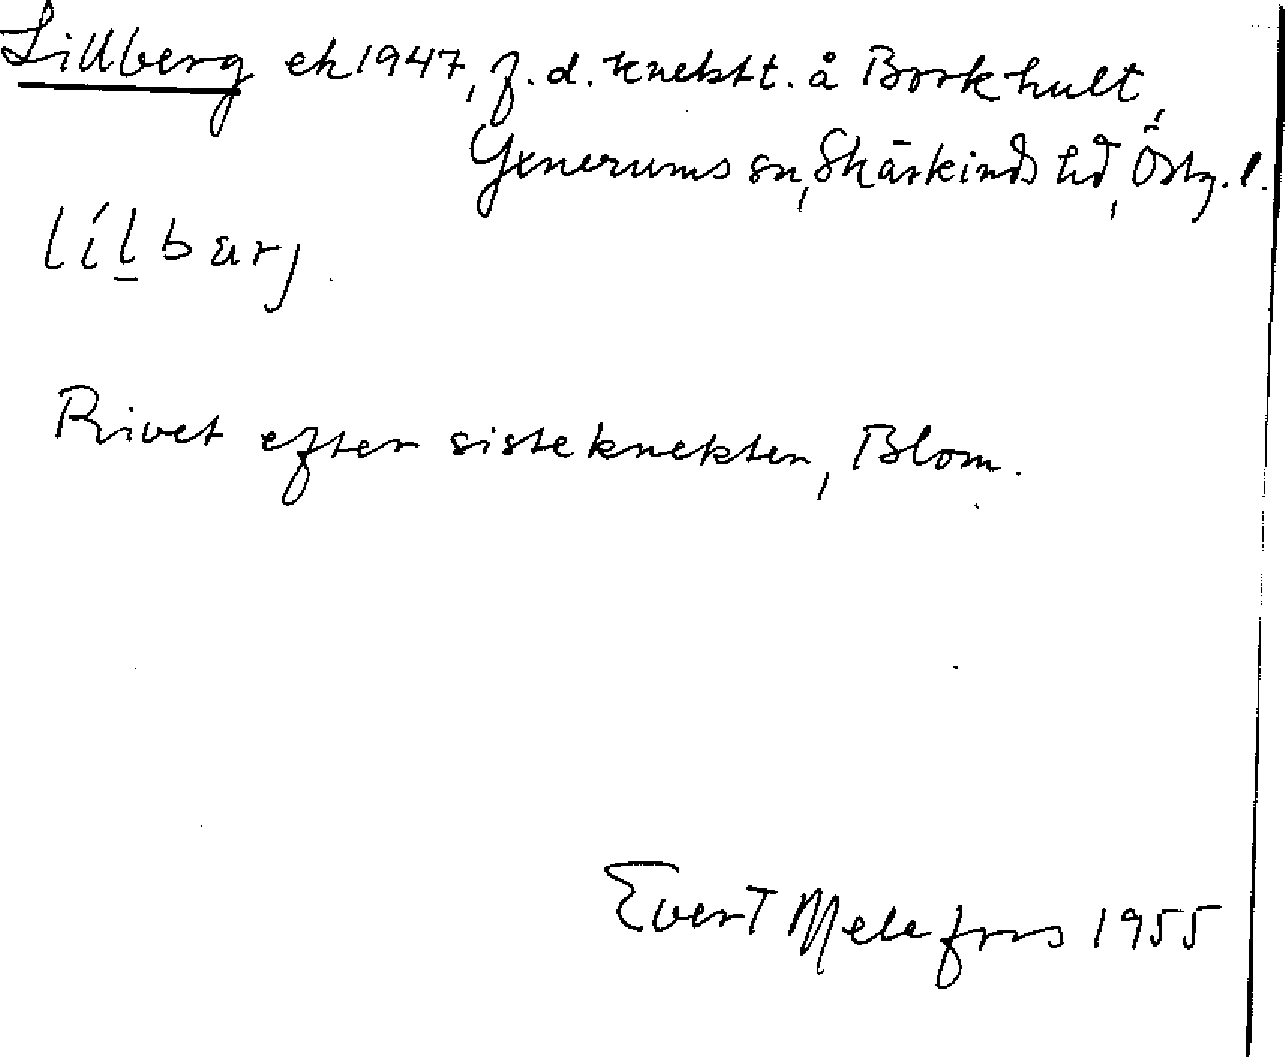 Lillberg ek 1947, f. d. knektt. å Borkhult,
Yxnerums sn, Skärkinds hd, Östg. l.
lílbarj
Rivet efter siste knekten, Blom.
Evert Melefors 1955